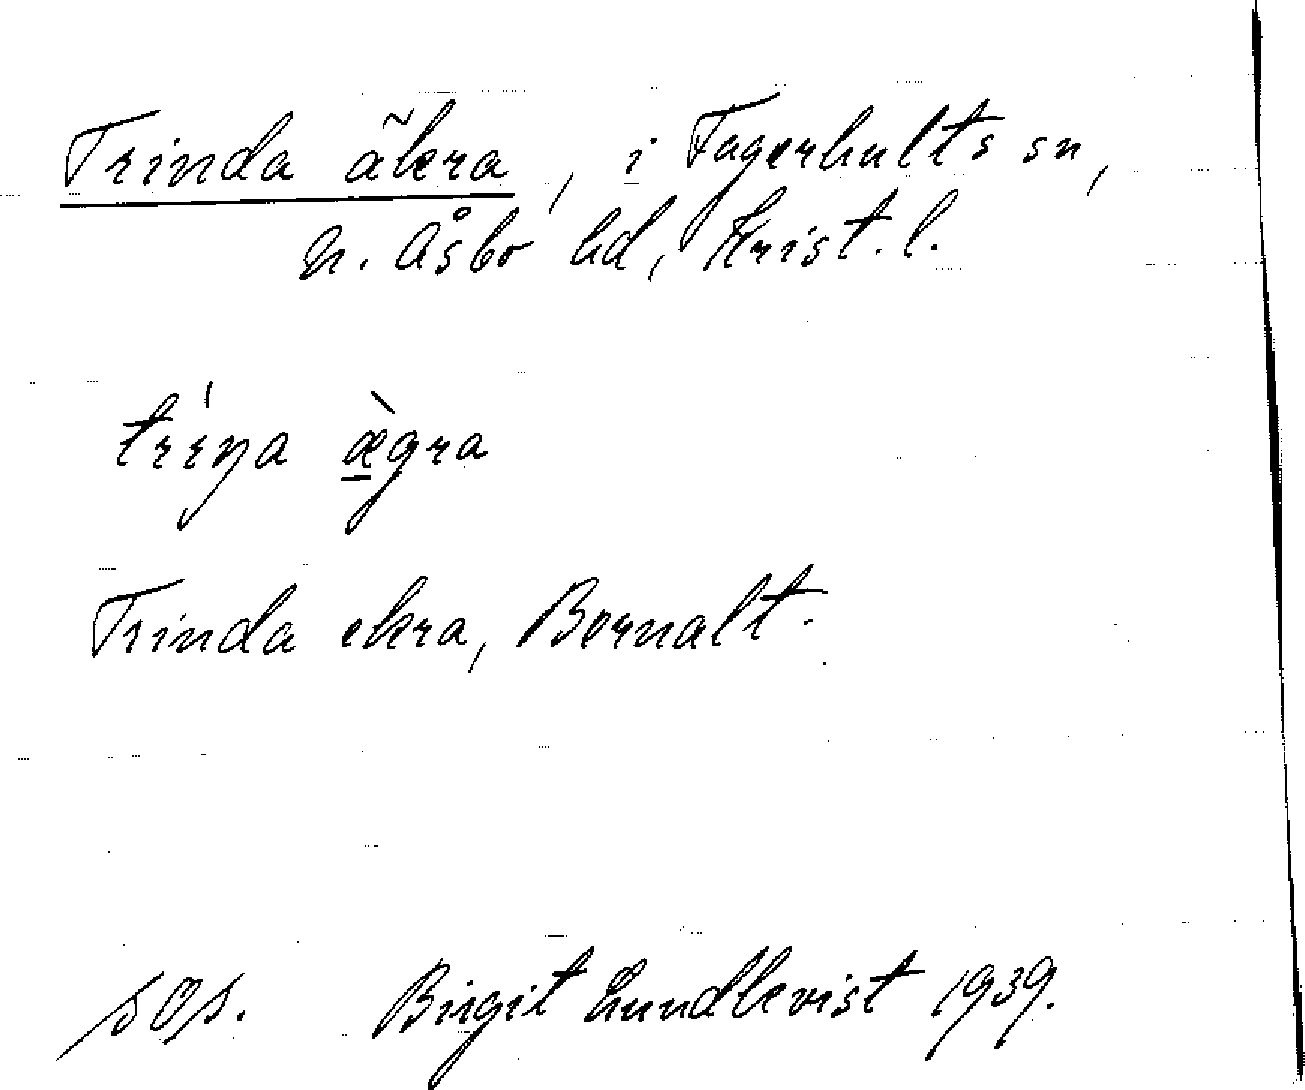 Trinda åkra, i Fagerhults sn,
N. Åsbo hd, Krist. l.
trína æ̀gra
Trinda ekra, Bernalt.
Birgit Lundkvist 1939.